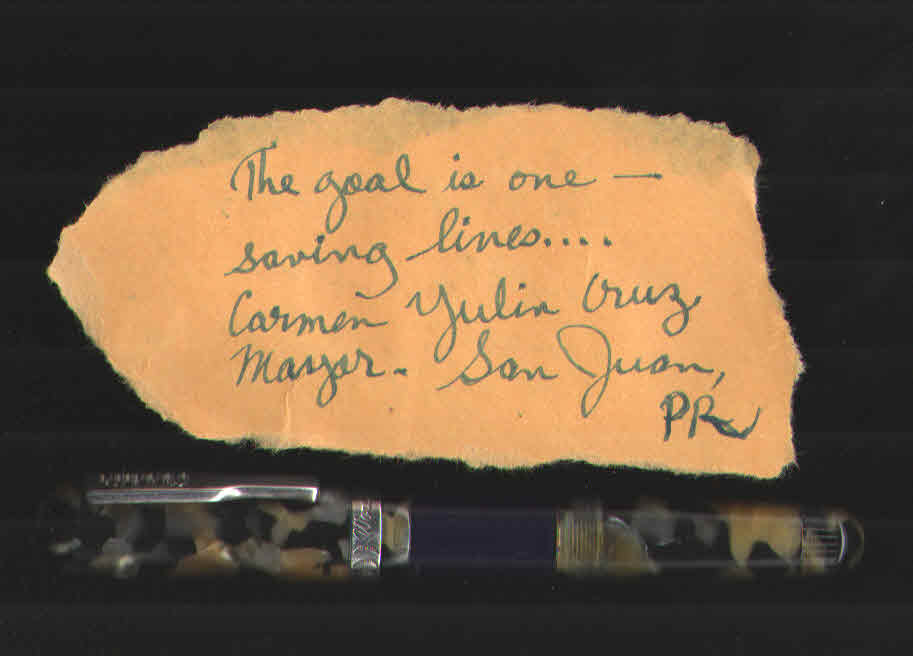 The goal is one —
saving lines....
Carmen Yulin Cruz
Mayor. San Juan,
PR